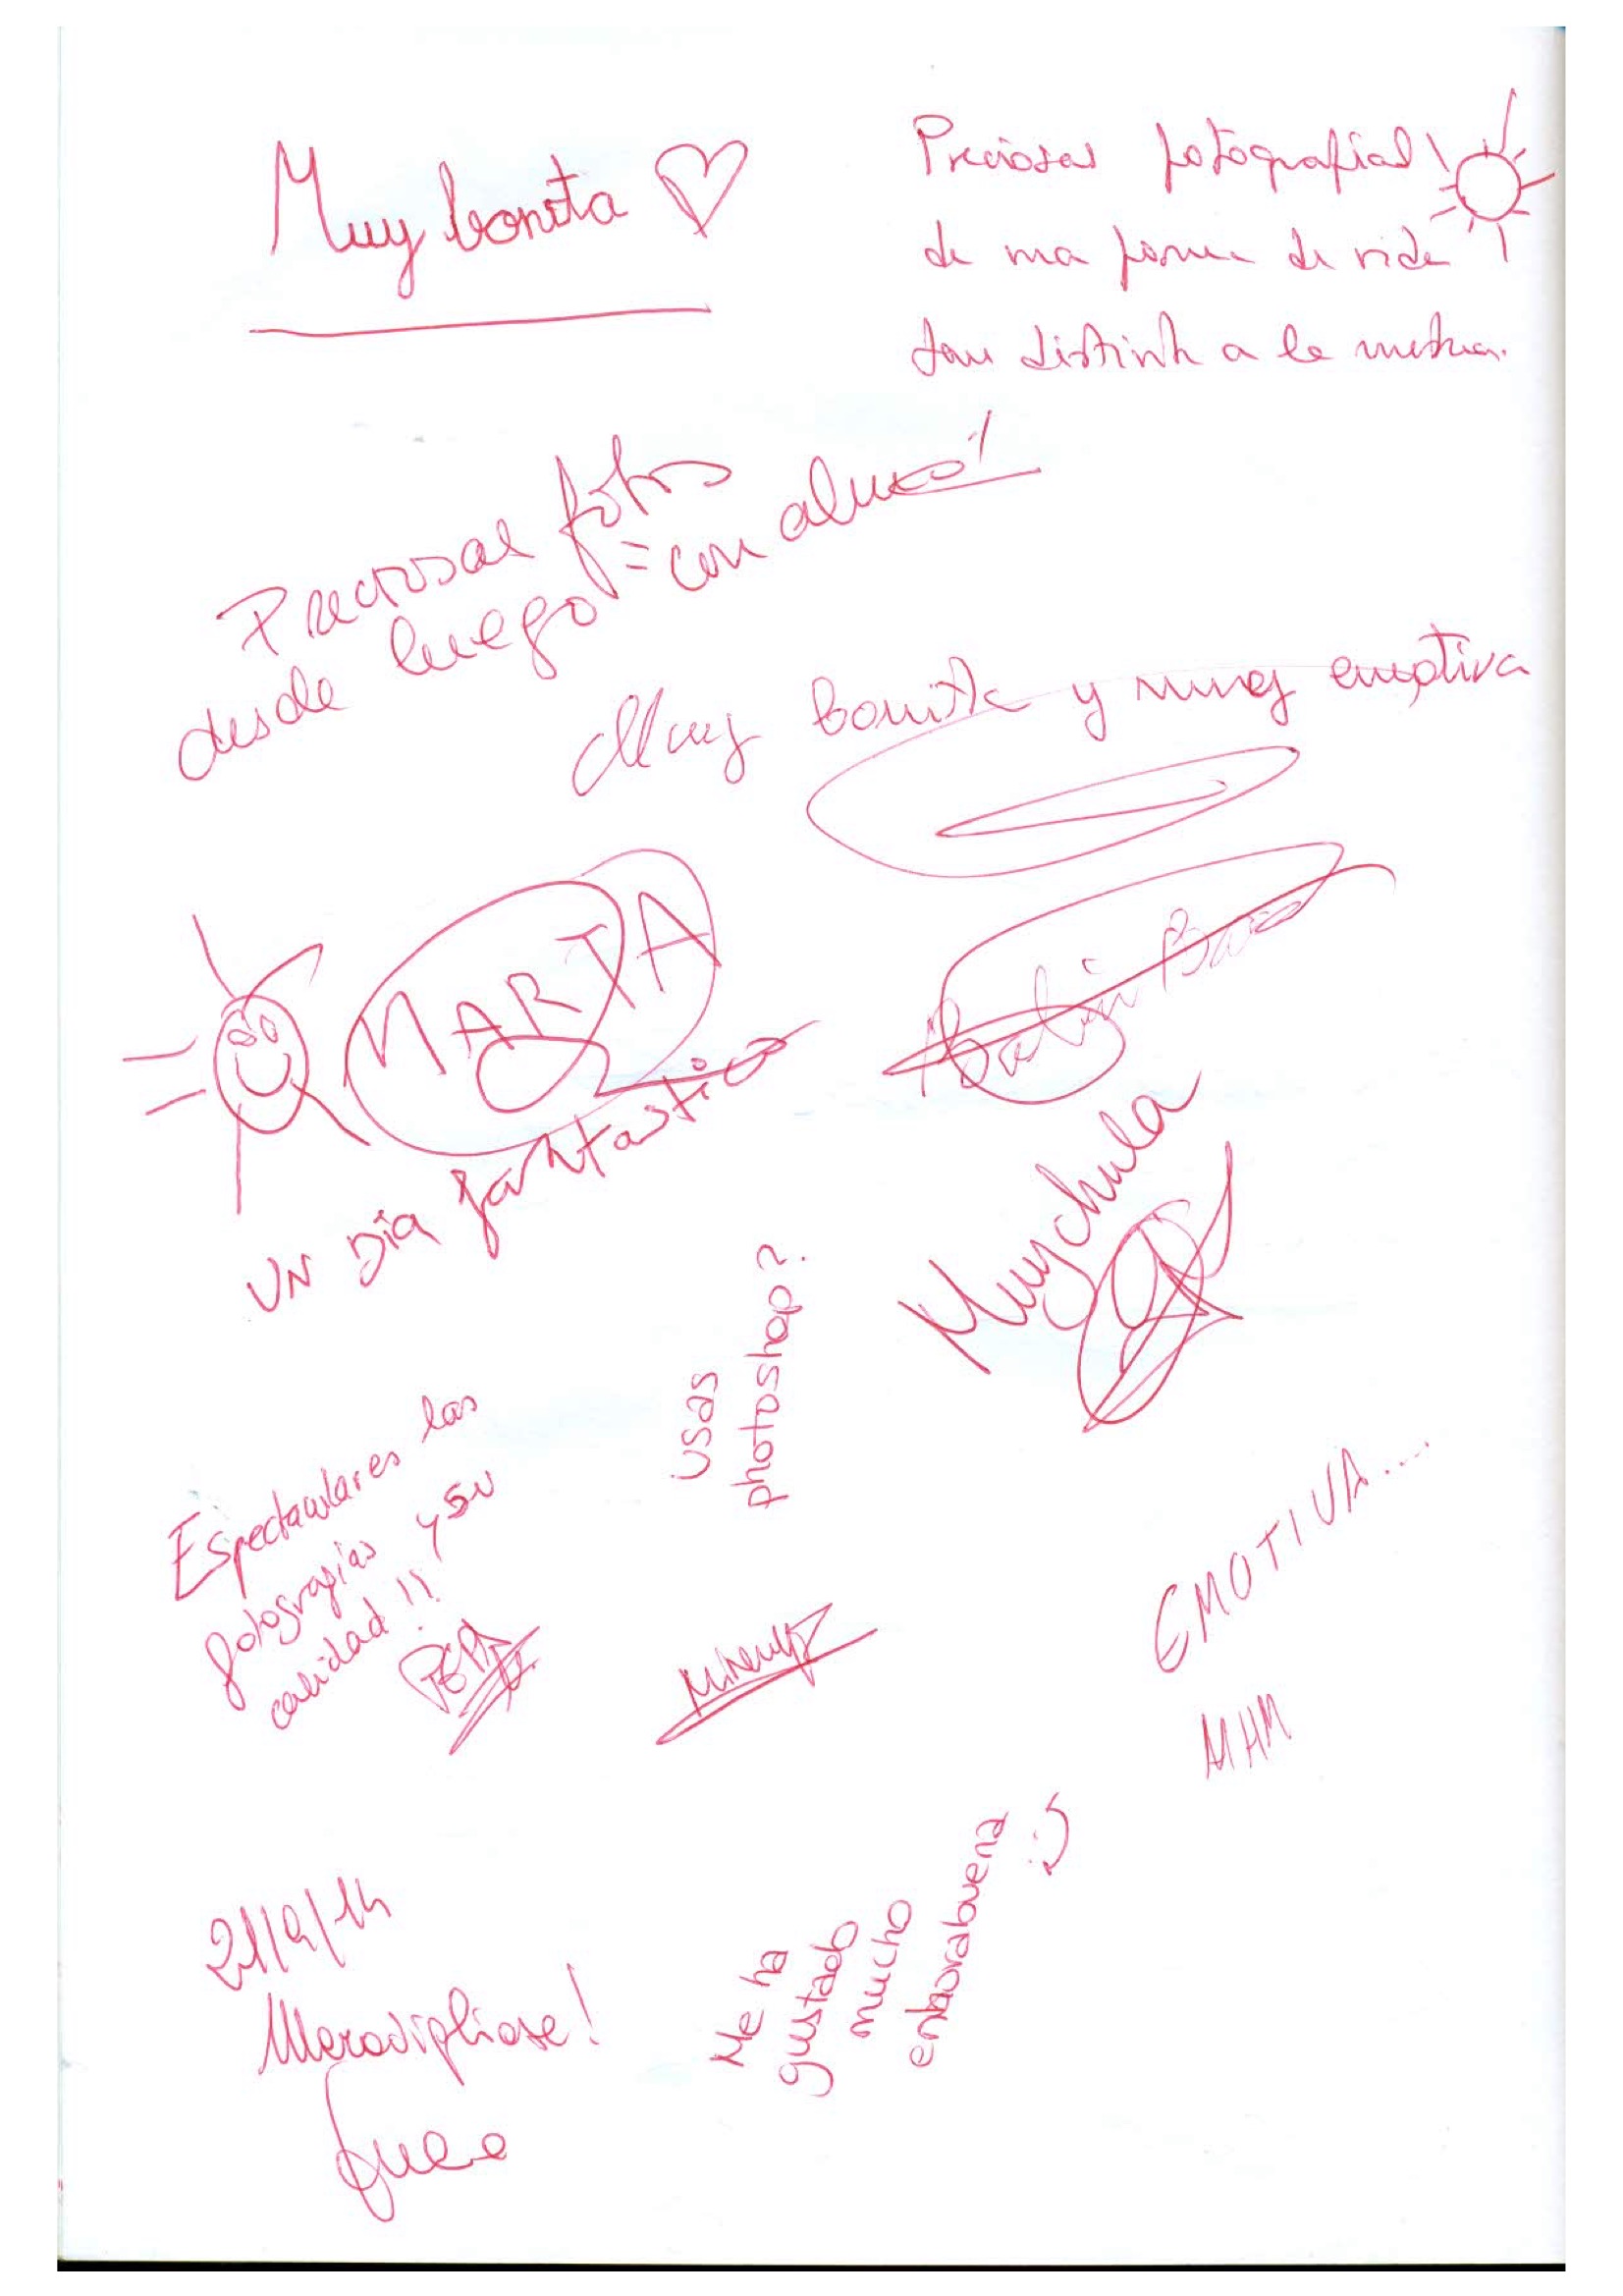 Muy bonita
Preciosas fotografias
de una forma de vida
tan distinta a la nuestra.
Preciosas fotos
desde luego = con alma!
Muy bonita y muy emotiva
MARTA
UN Día fantastico
Muy chula
usas
photoshop?
Espectaculares las
fotografías y su
calidad!!
PEPA
EMOTIVA....
MHM
21/9/14
Meravigliose!
Me ha
gustado
mucho
enhorabuena
:)